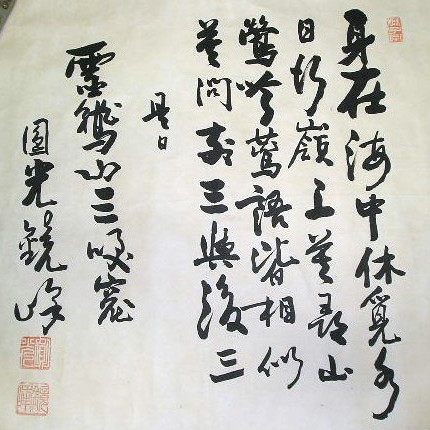 身在海中休覓水
日行嶺上莫尋山
鶯吟鷰語皆相似
莫問前三與後三
是日
靈鷲山三咲窟
圓光鏡峰